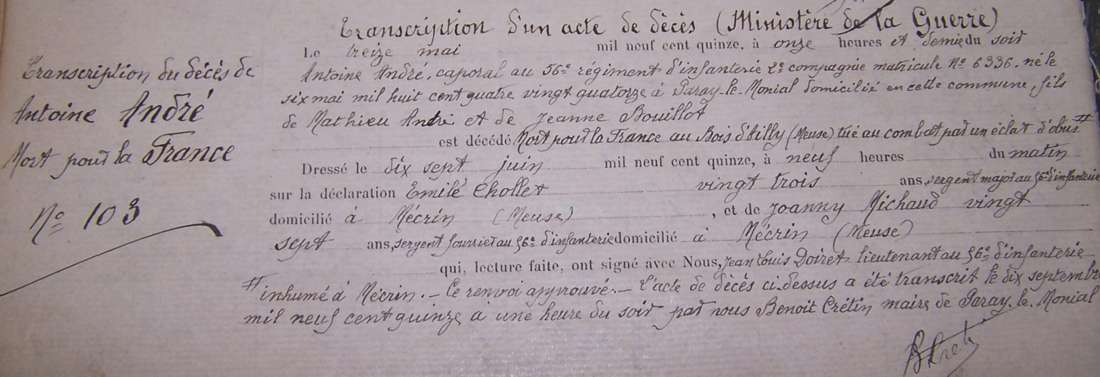 Transcription d'un acte de décès (Ministère de la Guerre)
Transcription du décès de
Antoine André
Mort pour la France
No 103
Le treize mai mil neuf cent quinze, à onze heures et demie du soir
Antoine André, caporal au 56e régiment d'infanterie 2e compagnie matricule No 6336. né le
six mai mil huit cent quatre vingt quatorze à Paray-le-Monial domicilié en cette commune, fils
de Mathieu André et de Jeanne Bouillot
est décédé Mort pour la France au Bois d'Ailly (Meuse) tué au combat par un éclat d'obus #
Dressé le dix sept juin mil neuf cent quinze, à neuf heures du matin
sur la déclaration Emile Chollet vingt trois ans, sergent major au 56e d'infanterie
domicilié à Mécrin (Meuse), et de Joanny Michaud vingt
sept ans, sergent fourrier au 56e d'infanterie domicilié à Mécrin (Meuse)
qui, lecture faite, ont signé avec Nous, Jean Louis Doiret lieutenant au 56e d'infanterie
# inhumé à Mécrin. - Ce renvoi approuvé. - L'acte de décès ci-dessus a été transcrit le dix septembre
mil neuf cent quinze a une heure du soir par nous Benoit Crétin maire de Paray-le-Monial